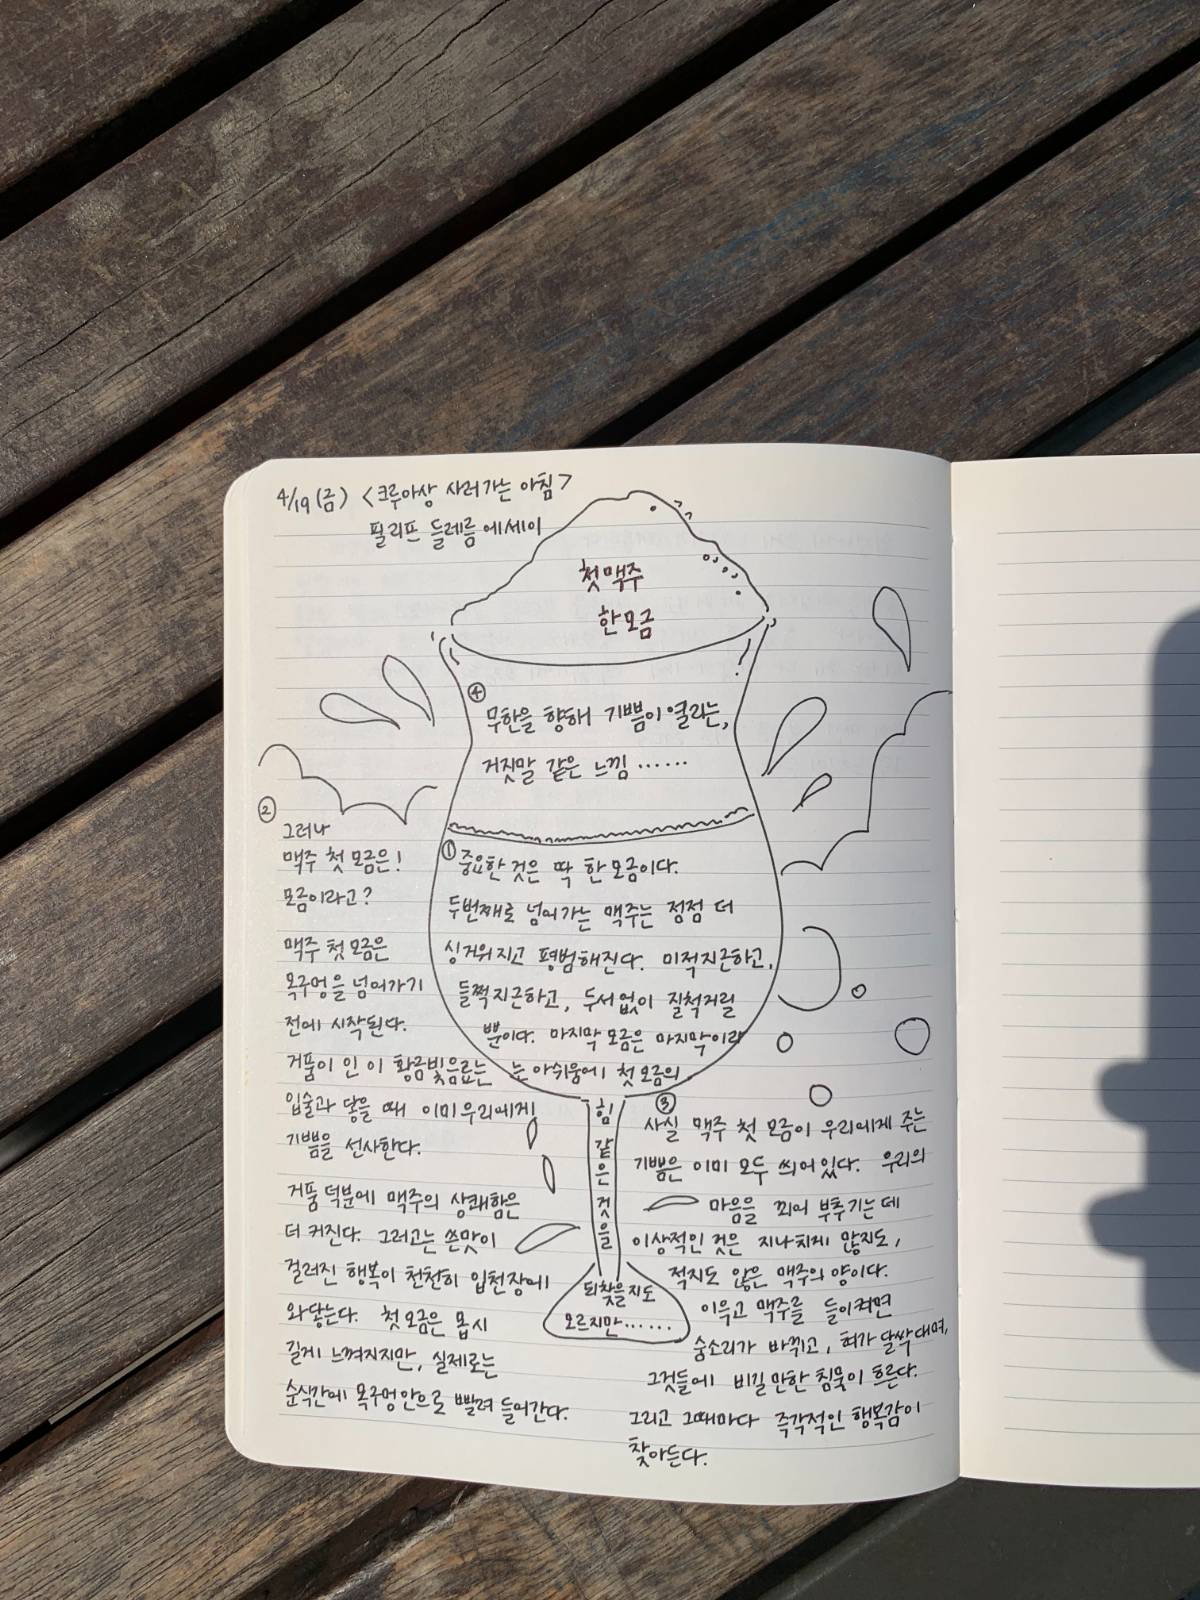 4/19(금) <크루아상 사러가는 아침>
필리프 들레름 에세이
첫 맥주
한 모금
④
무한을 향해 기쁨이 열리는,
거짓말 같은 느낌……
①
중요한 것은 딱 한 모금이다.
두번째로 넘어가는 맥주는 점점 더
싱거워지고 평범해진다. 미적지근하고,
들쩍지근하고, 두서없이 질척거릴
뿐이다. 마지막 모금은 마지막이라
는 아쉬움에 첫 모금의
힘
같
은
것
을
되찾을지도
모르지만……
②
그러나
맥주 첫 모금은!
모금이라고?
맥주 첫 모금은
목구멍을 넘어가기
전에 시작된다.
거품이 인 이 황금빛음료는
입술과 닿을 때 이미 우리에게
기쁨을 선사한다.
거품 덕분에 맥주의 상쾌함은
더 커진다. 그러고는 쓴맛이
걸러진 행복이 천천히 입천장에
와닿는다. 첫 모금은 몹시
길게 느껴지지만, 실제로는
순식간에 목구멍안으로 빨려 들어간다.
③
사실 맥주 첫 모금이 우리에게 주는
기쁨은 이미 모두 씌어있다. 우리의
마음을 꾀어 부추기는데
이상적인 것은 지나치게 많지도,
적지도 않은 맥주의 양이다.
이윽고 맥주를 들이켜면
숨소리가 바뀌고, 혀가 달싹대며,
그것들에 비길 만한 침묵이 흐른다.
그리고 그때마다 즉각적인 행복감이
찾아든다.